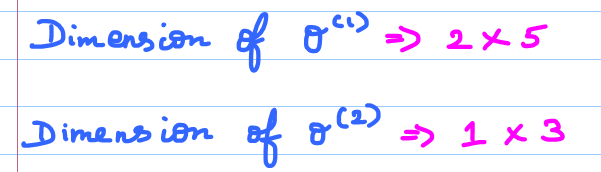 Dimension of σ⁽¹⁾ => 2 x 5
Dimension of σ⁽²⁾ => 1 x 3